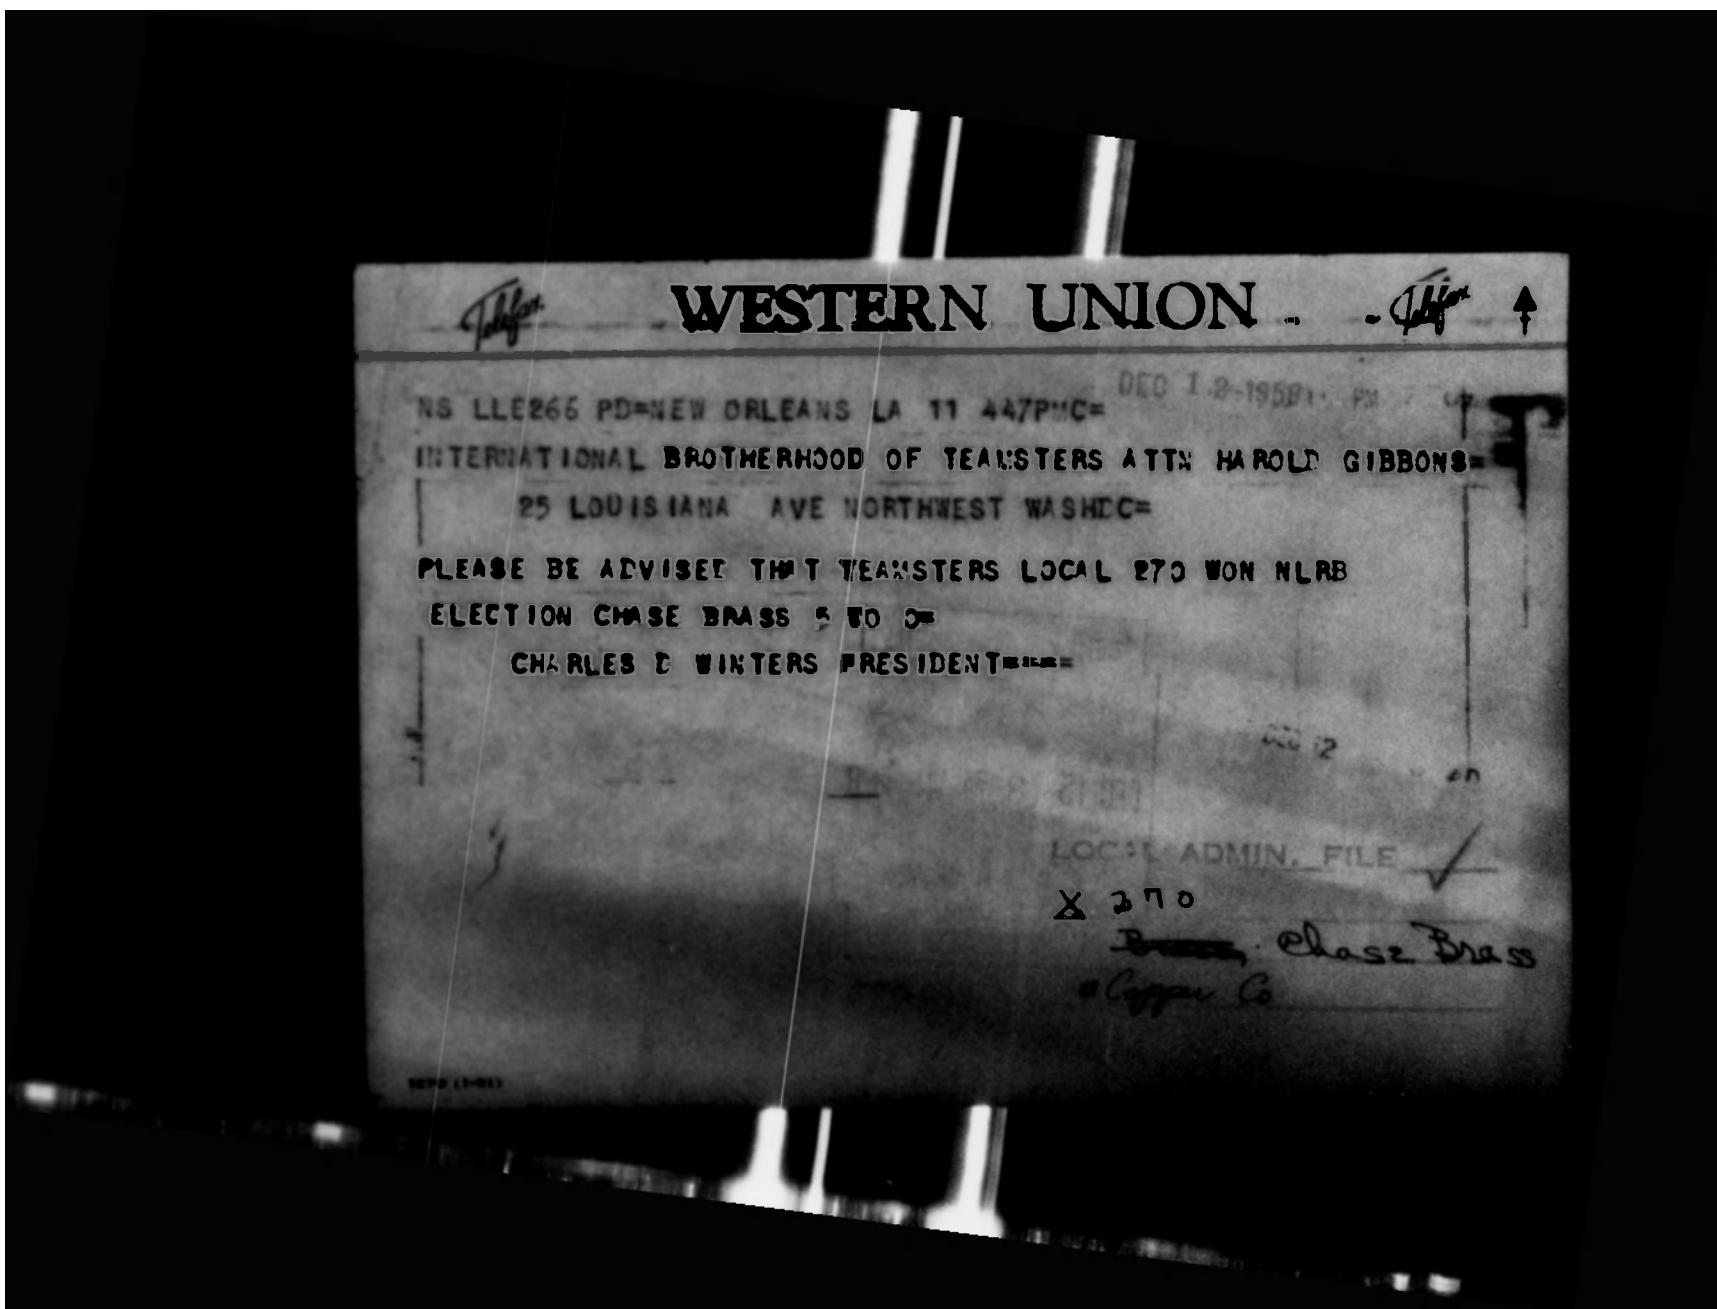 Telefax WESTERN UNION Telefax
DEC 12 1958
NS LLE266 PD=NEW ORLEANS LA 11 447PMC=
INTERNATIONAL BROTHERHOOD OF TEAMSTERS ATTN HAROLD GIBBONS=
25 LOUISIANA AVE NORTHWEST WASHDC=
PLEASE BE ADVISED THAT TEAMSTERS LOCAL 270 WON NLRB
ELECTION CHASE BRASS 5 TO 0=
CHARLES D WINTERS PRESIDENT====
DEC 12
DEC 15
LOCAL ADMIN. FILE ✓
X 270
Chase Brass
& Copper Co